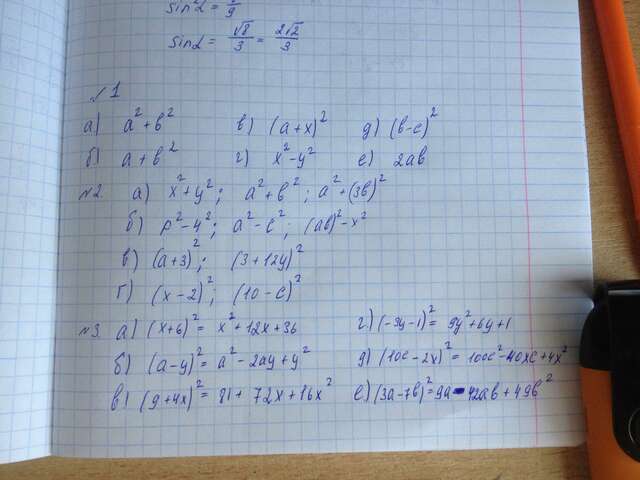 sin²α = /9
sinα = √8/3 = 2√2/3
√1
а) a²+b² в) (a+x)² д) (b-c)²
б) a+b² г) x²-y² е) 2ab
№2. а) x²+y²; a²+b²; a²+(3b)²
б) p²-4²; a²-c²; (ab)²-x²
в) (a+3)²; (3+12y)²
г) (x-2)²; (10-c)²
№3. а) (x+6)² = x²+12x+36 г) (-3y-1)² = 9y²+6y+1
б) (a-y)² = a²-2ay+y² д) (10c-2x)² = 100c²-40xc+4x²
в) (9+4x)² = 81+72x+16x² е) (3a-7b)² = 9a-42ab+49b²